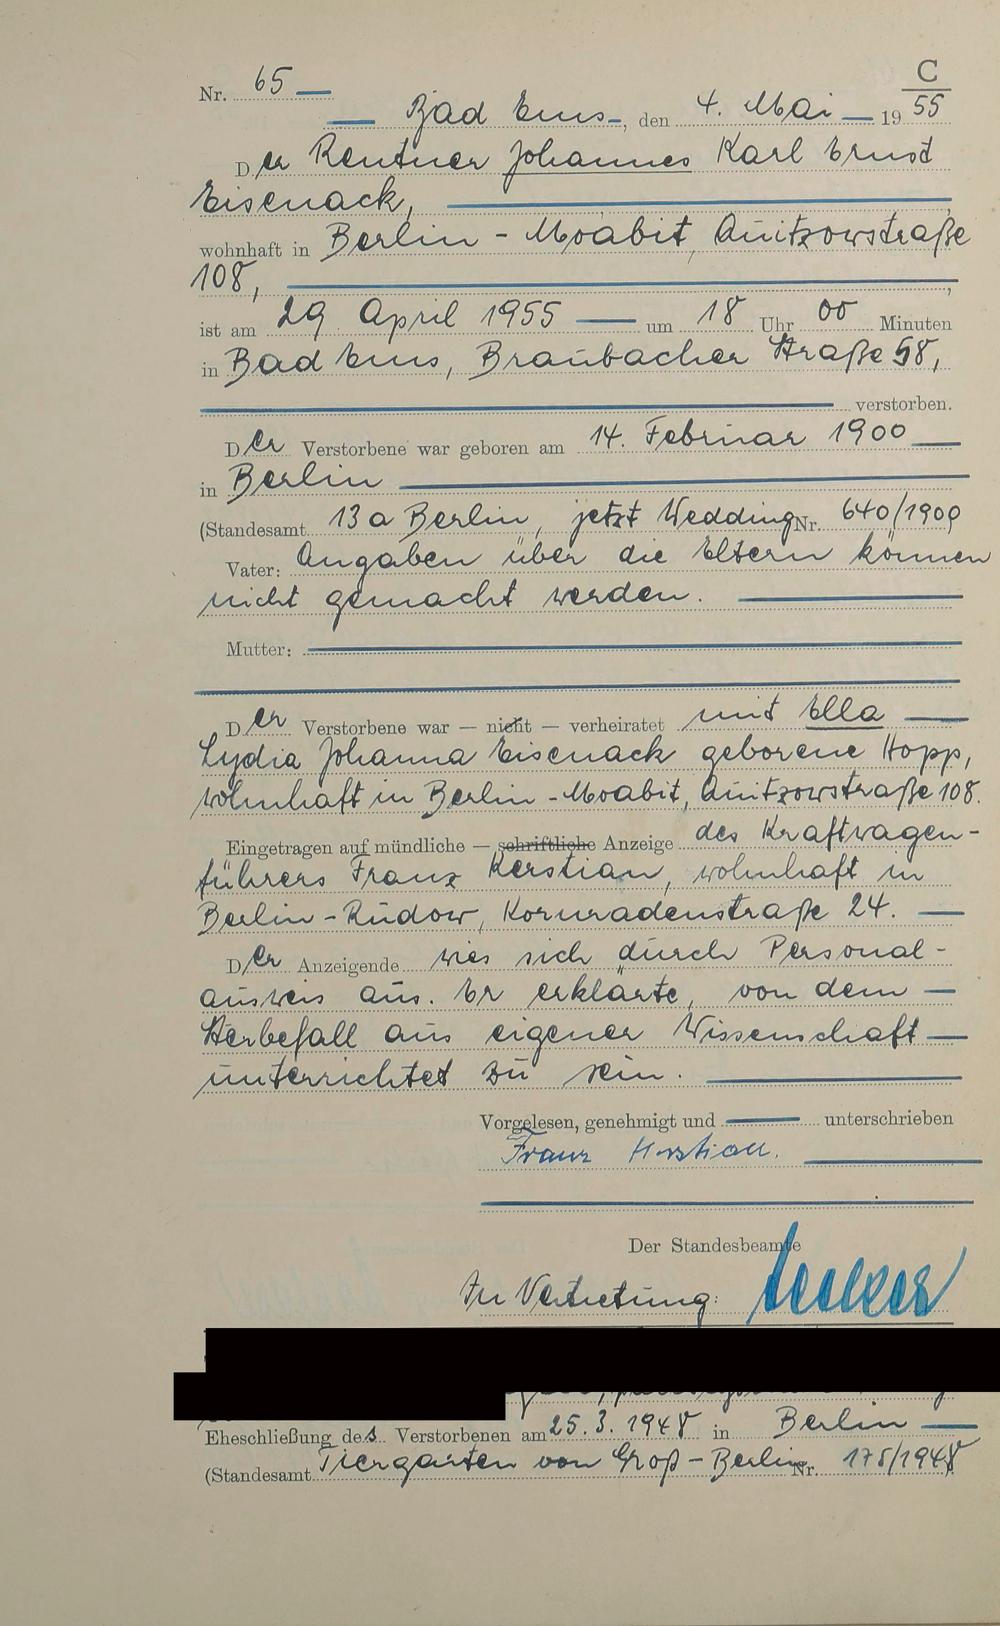 C
Nr. 65
Bad Ems, den 4. Mai 19 55
Der Rentner Johannes Karl Ernst
Eisenack,
wohnhaft in Berlin - Moabit, Quitzowstraße
108,
ist am 29 April 1955 um 18 Uhr 00 Minuten
in Bad Ems, Braubacher Straße 58,
verstorben.
Der Verstorbene war geboren am 14. Februar 1900
in Berlin
(Standesamt 13a Berlin, jetzt Wedding Nr. 640/1900
Vater: Angaben über die Eltern können
nicht gemacht werden.
Mutter:
Der Verstorbene war — nicht — verheiratet mit Ella
Lydia Johanna Eisenack geborene Hopp,
wohnhaft in Berlin - Moabit, Quitzowstraße 108.
Eingetragen auf mündliche — schriftliche Anzeige des Kraftwagen-
führers Franz Kerstian, wohnhaft in
Berlin - Rudow, Kornradenstraße 24.
Der Anzeigende wies sich durch Personal-
ausweis aus. Er erklärte, von dem
Sterbefall aus eigener Wissenschaft
unterrichtet zu sein.
Vorgelesen, genehmigt und unterschrieben
Franz Kerstian.
Der Standesbeamte
In Vertretung:
Eheschließung des Verstorbenen am 25.3.1948 in Berlin
(Standesamt Tiergarten von Groß - Berlin Nr. 178/1948